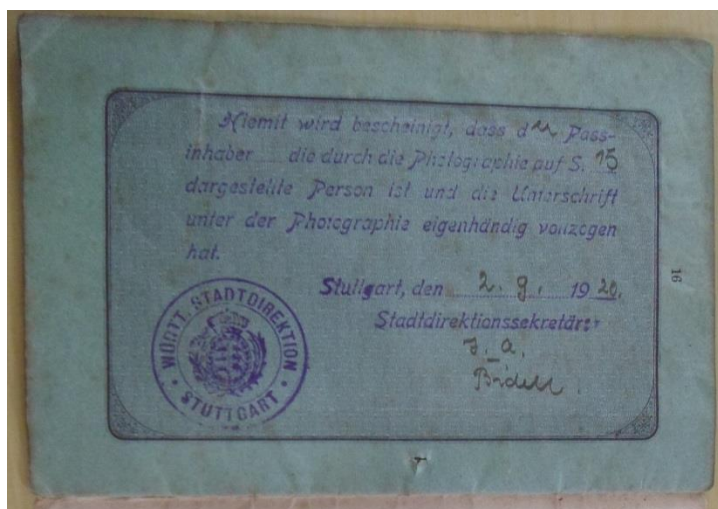 Hiemit wird bescheinigt, dass der Pass-
inhaber die durch die Photographie auf S. 15
dargestellte Person ist und die Unterschrift
unter der Photographie eigenhändig vollzogen
hat.
Stuttgart, den 2. 9. 1920.
Stadtdirektionssekretär:
J. A.
WÜRTT. STADTDIREKTION
STUTTGART
16